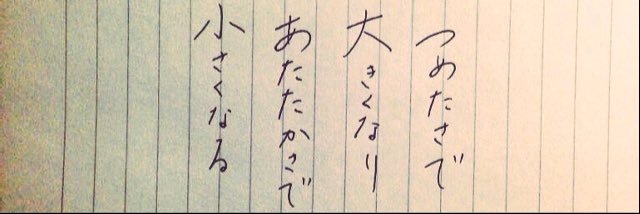 つめたさで
大きくなり
あたたかさで
小さくなる